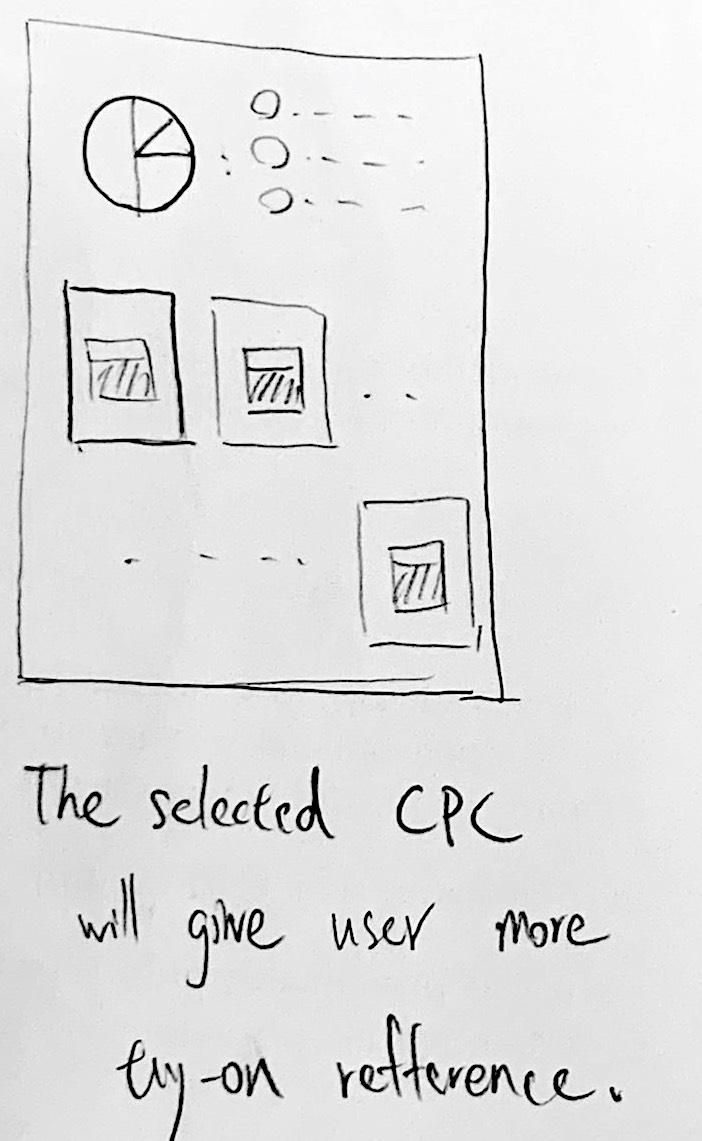 The selected CPC
will give user more
try-on refference.